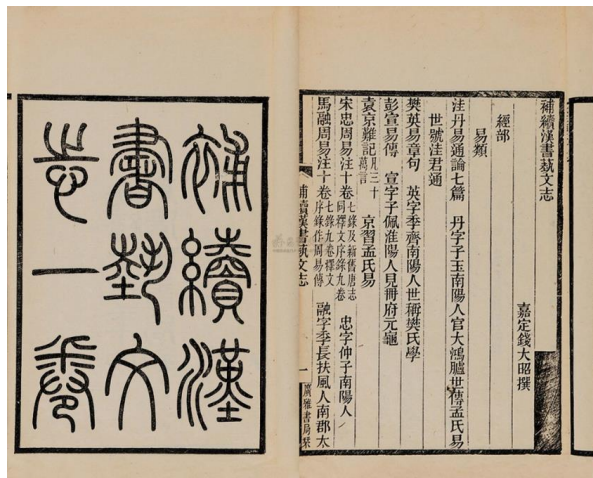 補續漢
書藝文
志一卷
補續漢書藝文志
嘉定錢大昭撰
經部
易類
洼丹易通論七篇 丹字子玉南陽人官大鴻臚世傳孟氏易
世號洼君通
樊英易章句 英字季齊南陽人世稱樊氏學
彭宣易傳 宣字子佩淮陽人見冊府元龜
袁京難記 凡三十萬言 京習孟氏易
宋忠周易注十卷 七錄及新舊唐志同釋文序錄九卷 忠字仲子南陽人
馬融周易注十卷 七錄九卷釋文序錄作周易傳 融字季長扶風人南郡太
補續漢書藝文志
一
廣雅書局栞